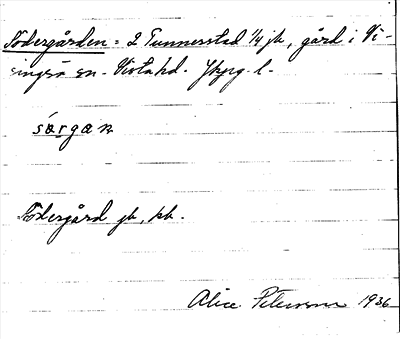 Södergården = 2 Tunnerstad 1/4 jb, gård i Vi-
singsö sn. Vista hd. Jkpg. l.
sárgan
Södergård jb, kb.
Alice Petersson 1936